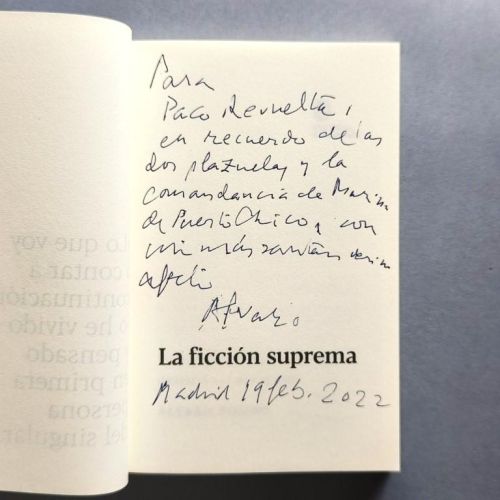 Para
Paco Revuelta,
en recuerdo de las
dos plazuelas y la
comandancia de Marina
de Puerto Chico, con
mi más
afecto
Álvaro
La ficción suprema
Madrid 19 feb. 2022
lo que voy
a contar a
continuación
lo he vivido
y pensado
en primera
persona
del singular.